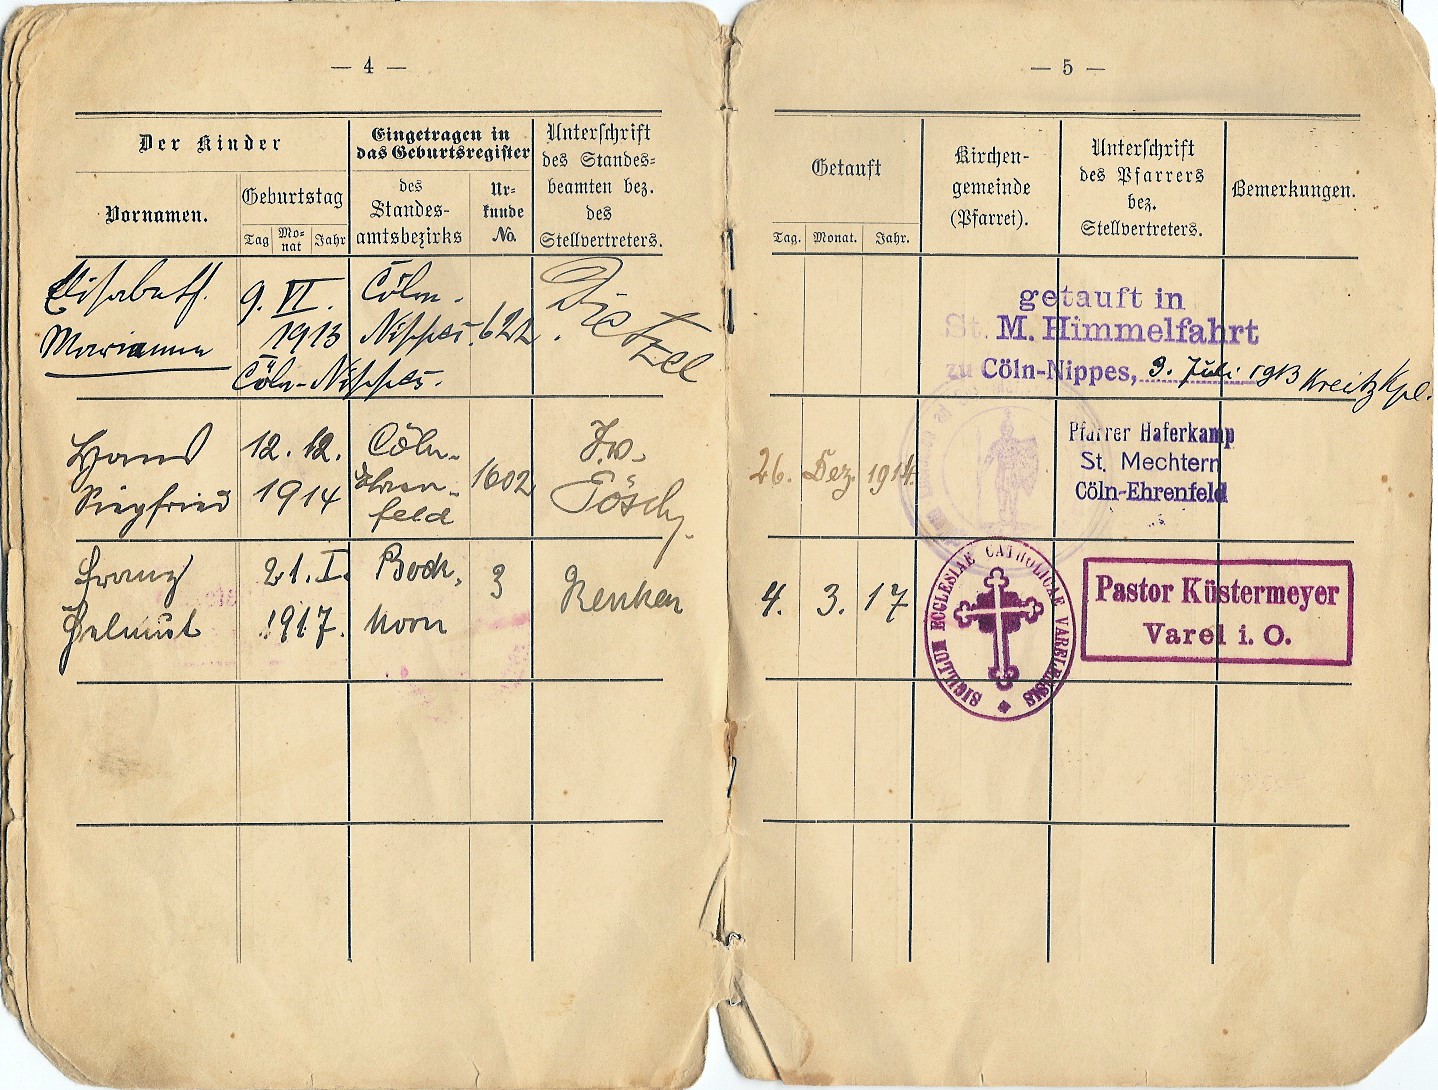 — 4 —
Der Kinder
Eingetragen in
das Geburtsregister
Unterschrift
des Standes-
beamten bez.
des
Stellvertreters.
Vornamen.
Geburtstag
Tag
Mo-
nat
Jahr
des
Standes-
amtsbezirks
Ur-
kunde
No.
Elisabeth.
Marianne
9. VI.
1913
Cöln-Nippes.
Cöln-
Nippes.
622.
Dietzel
Hans
Siegfried
12. 12.
1914
Cöln-
Ehren-
feld
1602
J.v.
Franz
Helmut
21. I.
1917.
Bock-
horn
3
Renken
— 5 —
Getauft
Tag.
Monat.
Jahr.
Kirchen-
gemeinde
(Pfarrei).
Unterschrift
des Pfarrers
bez.
Stellvertreters.
Bemerkungen.
getauft in
St. M. Himmelfahrt
zu Cöln-Nippes, 3. Juli 1913 Kreitz Kpl.
26. Dez. 1914.
Pfarrer Haferkamp
St. Mechtern
Cöln-Ehrenfeld
4. 3. 17
SIGILLUM ECCLESIAE CATHOLICAE VARELENSIS
Pastor Küstermeyer
Varel i. O.